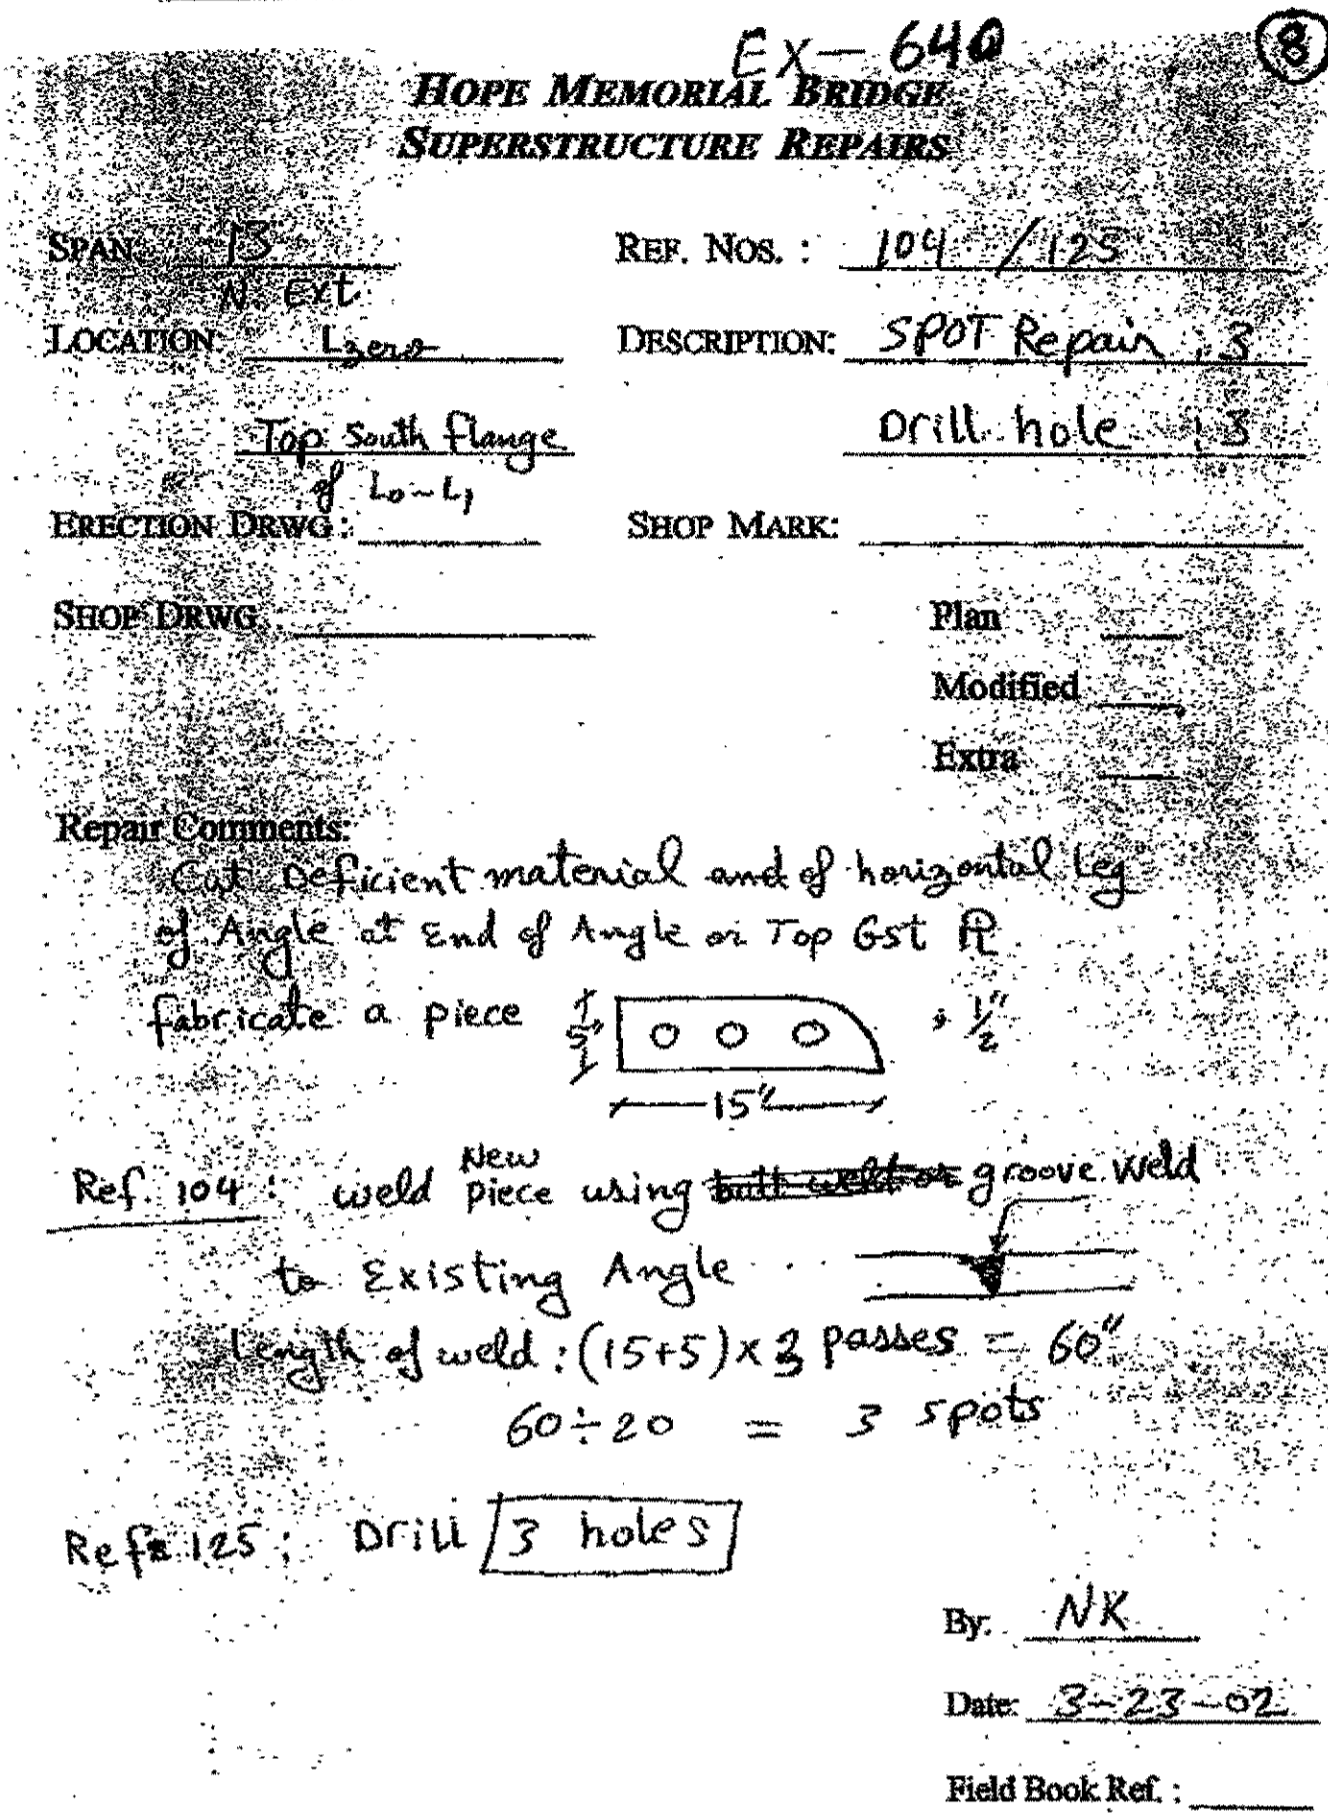 EX-640
8
HOPE MEMORIAL BRIDGE
SUPERSTRUCTURE REPAIRS
SPAN 13 REF. NOS. : 104 / 125
N. Ext
LOCATION Lzero DESCRIPTION: SPOT Repair : 3
Top South flange Drill hole : 3
of L0-L1
ERECTION DRWG : SHOP MARK:
SHOP DRWG. :
Plan
Modified
Extra
Repair Comments:
Cut Deficient material and of horizontal Leg
of Angle at End of Angle on Top Gst PL
fabricate a piece 5" ; 1/2"
15"
New
Ref. 104 : weld piece using butt weld or groove weld
to Existing Angle
Length of weld : (15+5) x 3 passes = 60"
60 ÷ 20 = 3 spots
Ref 125 : Drill 3 holes
By: NK
Date: 3-23-02
Field Book Ref. :